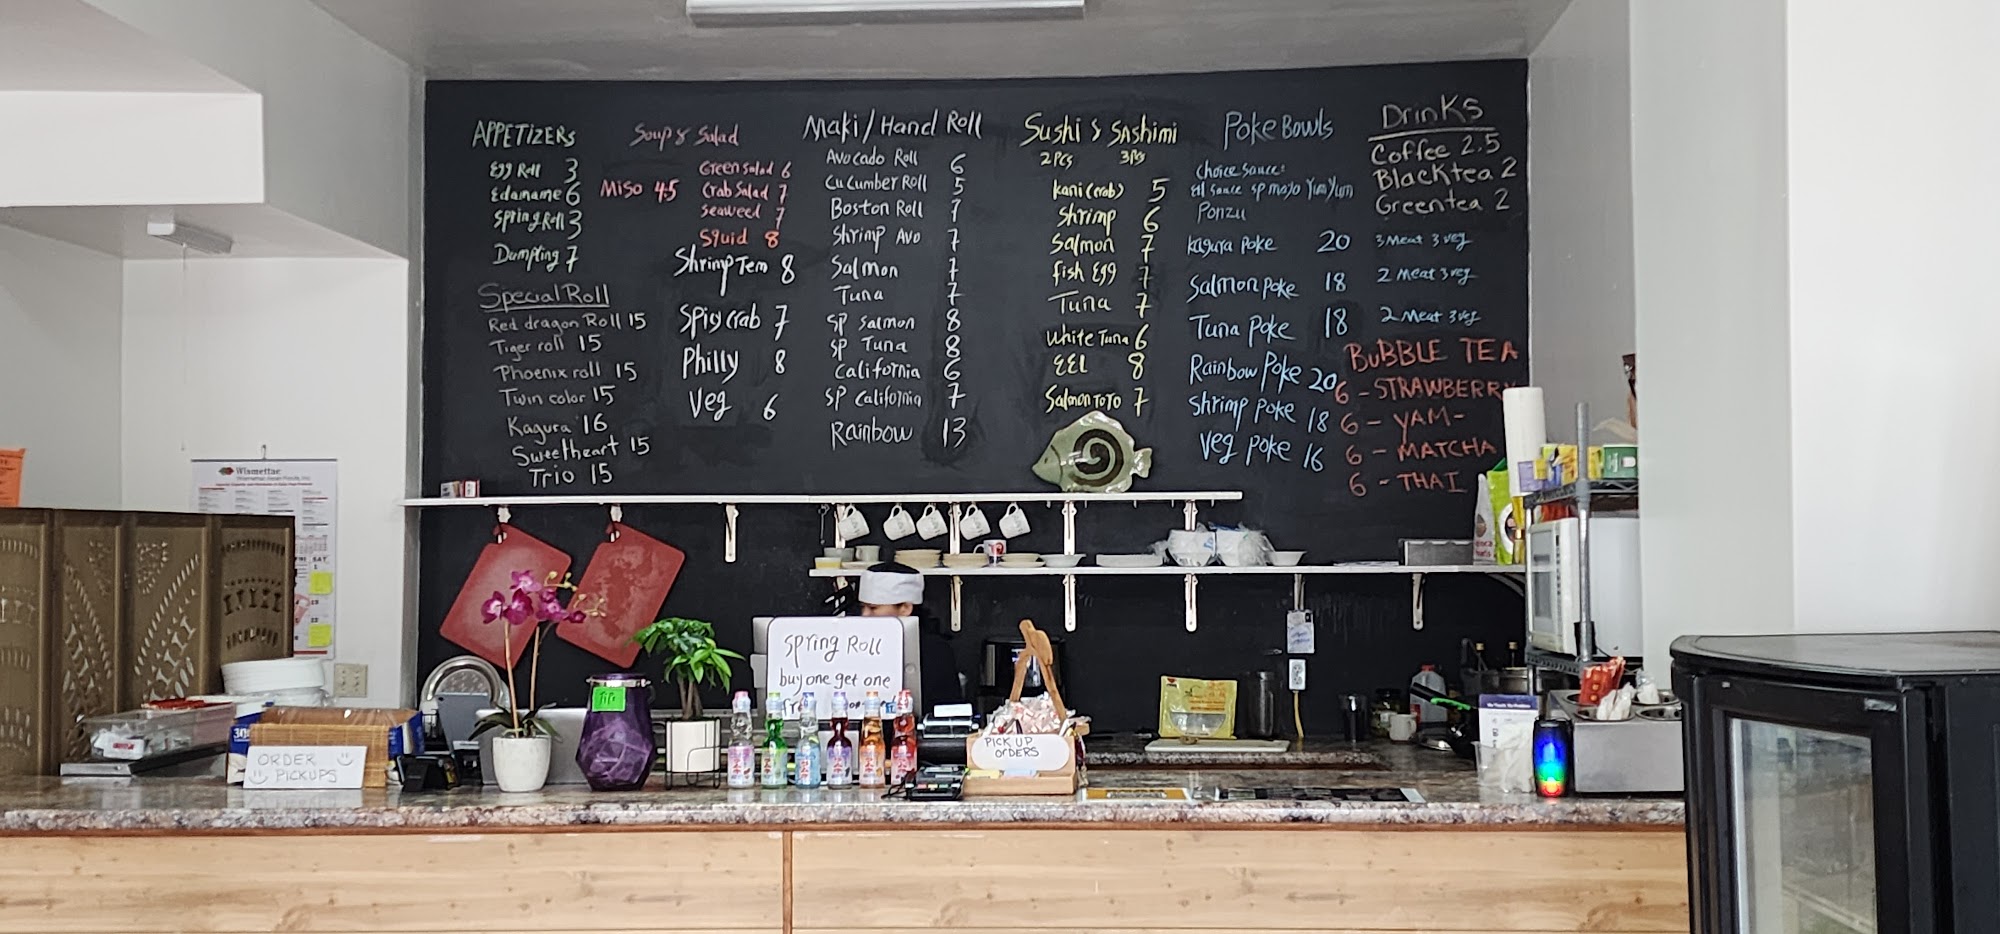 APPETIZERS
Egg Roll 3
Edamame 6
Spring Roll 3
Dumpling 7
Special Roll
Red dragon Roll 15
Tiger roll 15
Phoenix roll 15
Twin color 15
Kagura 16
Sweetheart 15
Trio 15
Soup & Salad
Miso 4.5
Green Salad 6
Crab Salad 7
Seaweed 7
Squid 8
Shrimp Tem 8
Spicy Crab 7
Philly 8
Veg 6
Maki / Hand Roll
Avocado Roll 6
Cucumber Roll 5
Boston Roll 7
Shrimp Avo 7
Salmon 7
Tuna 7
SP Salmon 8
SP Tuna 8
California 6
SP California 7
Rainbow 13
Sushi & Sashimi
2Pcs 3Pcs
Kani (crab) 5
Shrimp 6
Salmon 7
Fish Egg 7
Tuna 7
White Tuna 6
EEL 8
Salmon ToTo 7
Poke Bowls
Choice Sauce:
Eel Sauce SP mayo YumYum
Ponzu
Kagura Poke 20 3 Meat 3 veg
Salmon Poke 18 2 Meat 3 veg
Tuna Poke 18 2 Meat 3 veg
Rainbow Poke 20
Shrimp Poke 18
Veg Poke 16
Drinks
Coffee 2.5
Black tea 2
Green tea 2
BUBBLE TEA
6 - STRAWBERRY
6 - YAM -
6 - MATCHA
6 - THAI
Wismettac
Spring Roll
buy one get one
ORDER
PICKUPS
PICK UP
ORDERS